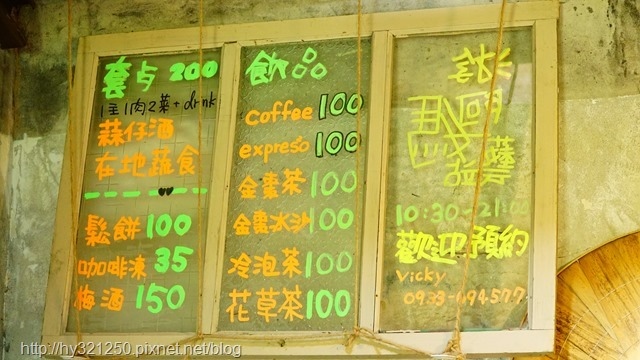 套点 200
1主 1肉2菜+drink
蒜仔酒
在地蔬食
鬆餅 100
咖啡凍 35
梅酒 150
飲品
coffee 100
expreso 100
金棗茶 100
金棗冰沙 100
冷泡茶 100
花草茶 100
10:30-21:00
歡迎預約
Vicky
0933-094577
http://hy321250.pixnet.net/blog